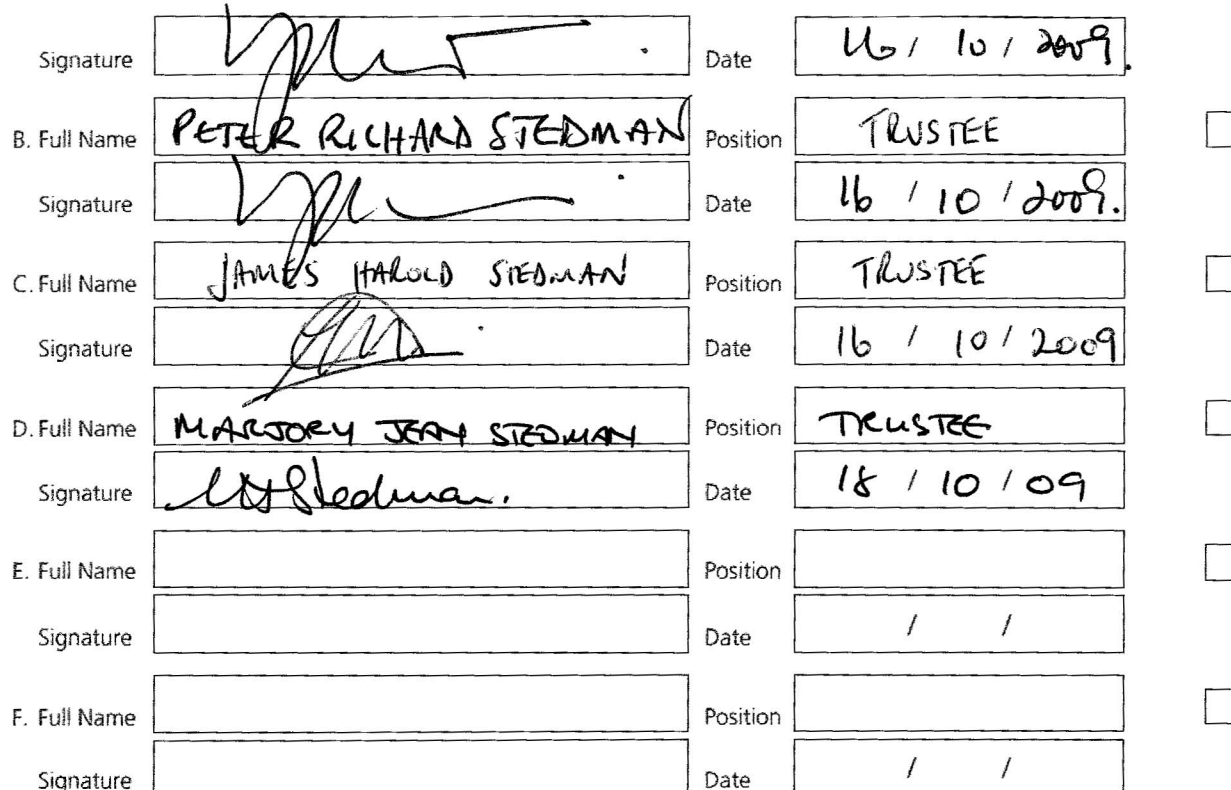 Signature Date 16 / 10 / 2009.
B. Full Name PETER RICHARD STEDMAN Position TRUSTEE
Signature Date 16 / 10 / 2009.
C. Full Name JAMES HAROLD STEDMAN Position TRUSTEE
Signature Date 16 / 10 / 2009
D. Full Name MARJORY JEAN STEDMAN Position TRUSTEE
Signature MJStedman. Date 18 / 10 / 09
E. Full Name Position
Signature Date / /
F. Full Name Position
Signature Date / /